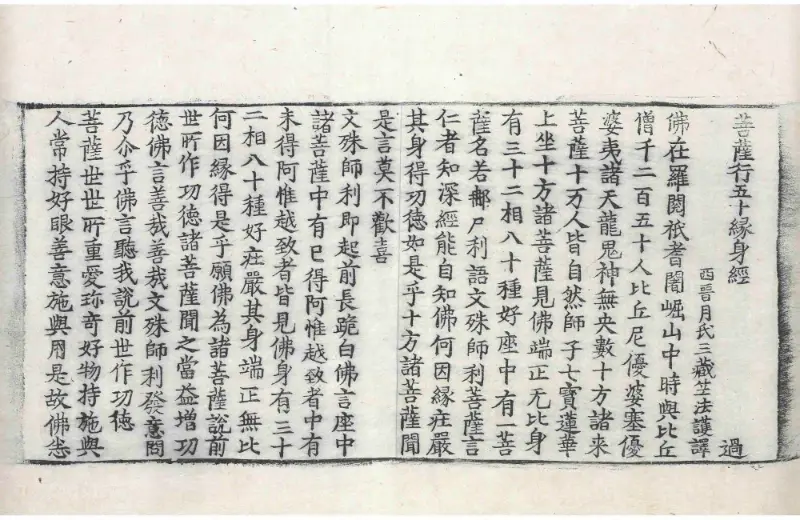 菩薩行五十縁身經 過
西晉月氏三藏竺法護譯
佛在羅閱祇耆闍崛山中時與比丘
僧千二百五十人比丘尼優婆塞優
婆夷諸天龍鬼神無央數十方諸来
菩薩十万人皆自然師子七寶蓮華
上坐十方諸菩薩見佛端正无比身
有三十二相八十種好座中有一菩
薩名若郍尸利語文殊師利菩薩言
仁者知深經能自知佛何因縁庄嚴
其身得功徳如是乎十方諸菩薩聞
是言莫不歡喜
文殊師利即起前長跪白佛言座中
諸菩薩中有已得阿惟越致者中有
未得阿惟越致者皆見佛身有三十
二相八十種好庄嚴其身端正無比
何因縁得是乎願佛為諸菩薩說前
世所作功徳諸菩薩聞之當益增功
徳佛言善哉善哉文殊師利發意問
乃尒乎佛言聽我說前世作功徳
菩薩世世所重愛珎奇好物持施與
人常持好眼善意施與用是故佛悉